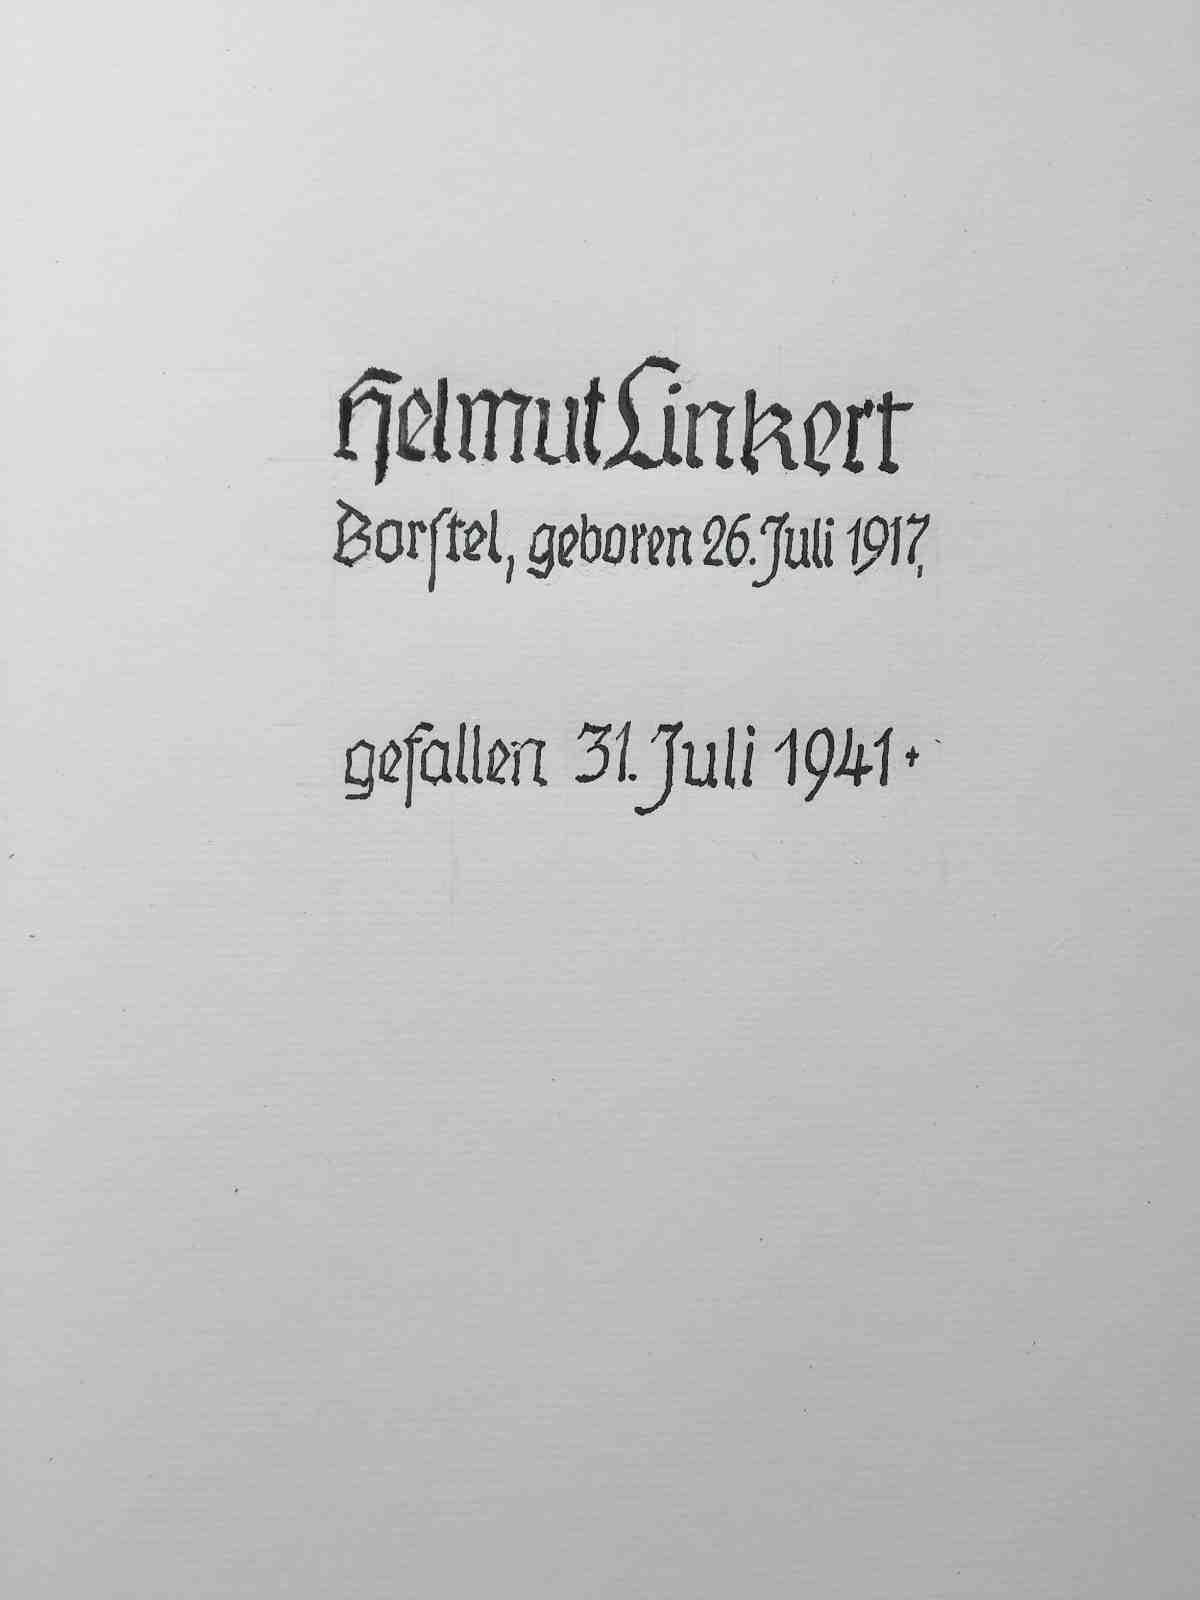 Helmut Linkert
Borſtel, geboren 26. Juli 1917,
gefallen 31. Juli 1941 +